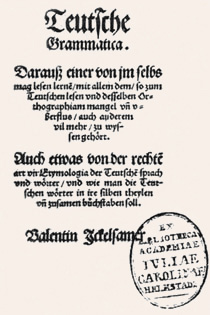 Teutsche
Grammatica.
Darauß einer von jm selbs
mag lesen lernẽ/mit allem dem/so zum
Teutschen lesen vnd desselben Or-
thographiam mangel vñ v-
berfluß/auch anderem
vil mehr/zu wys-
sen gehört.
Auch etwas von der rechtẽ
art vnd Etymologia der Teutschẽ sprach
vnd wörter/vnd wie man die Teut-
schen wörter in ire silben theylen
vñ zusamen bůchstaben soll.
Valentin Ickelsamer.
EX
BIBLIOTHECA
ACADEMIAE
IULIAE
CAROLINAE
HELMSTADI